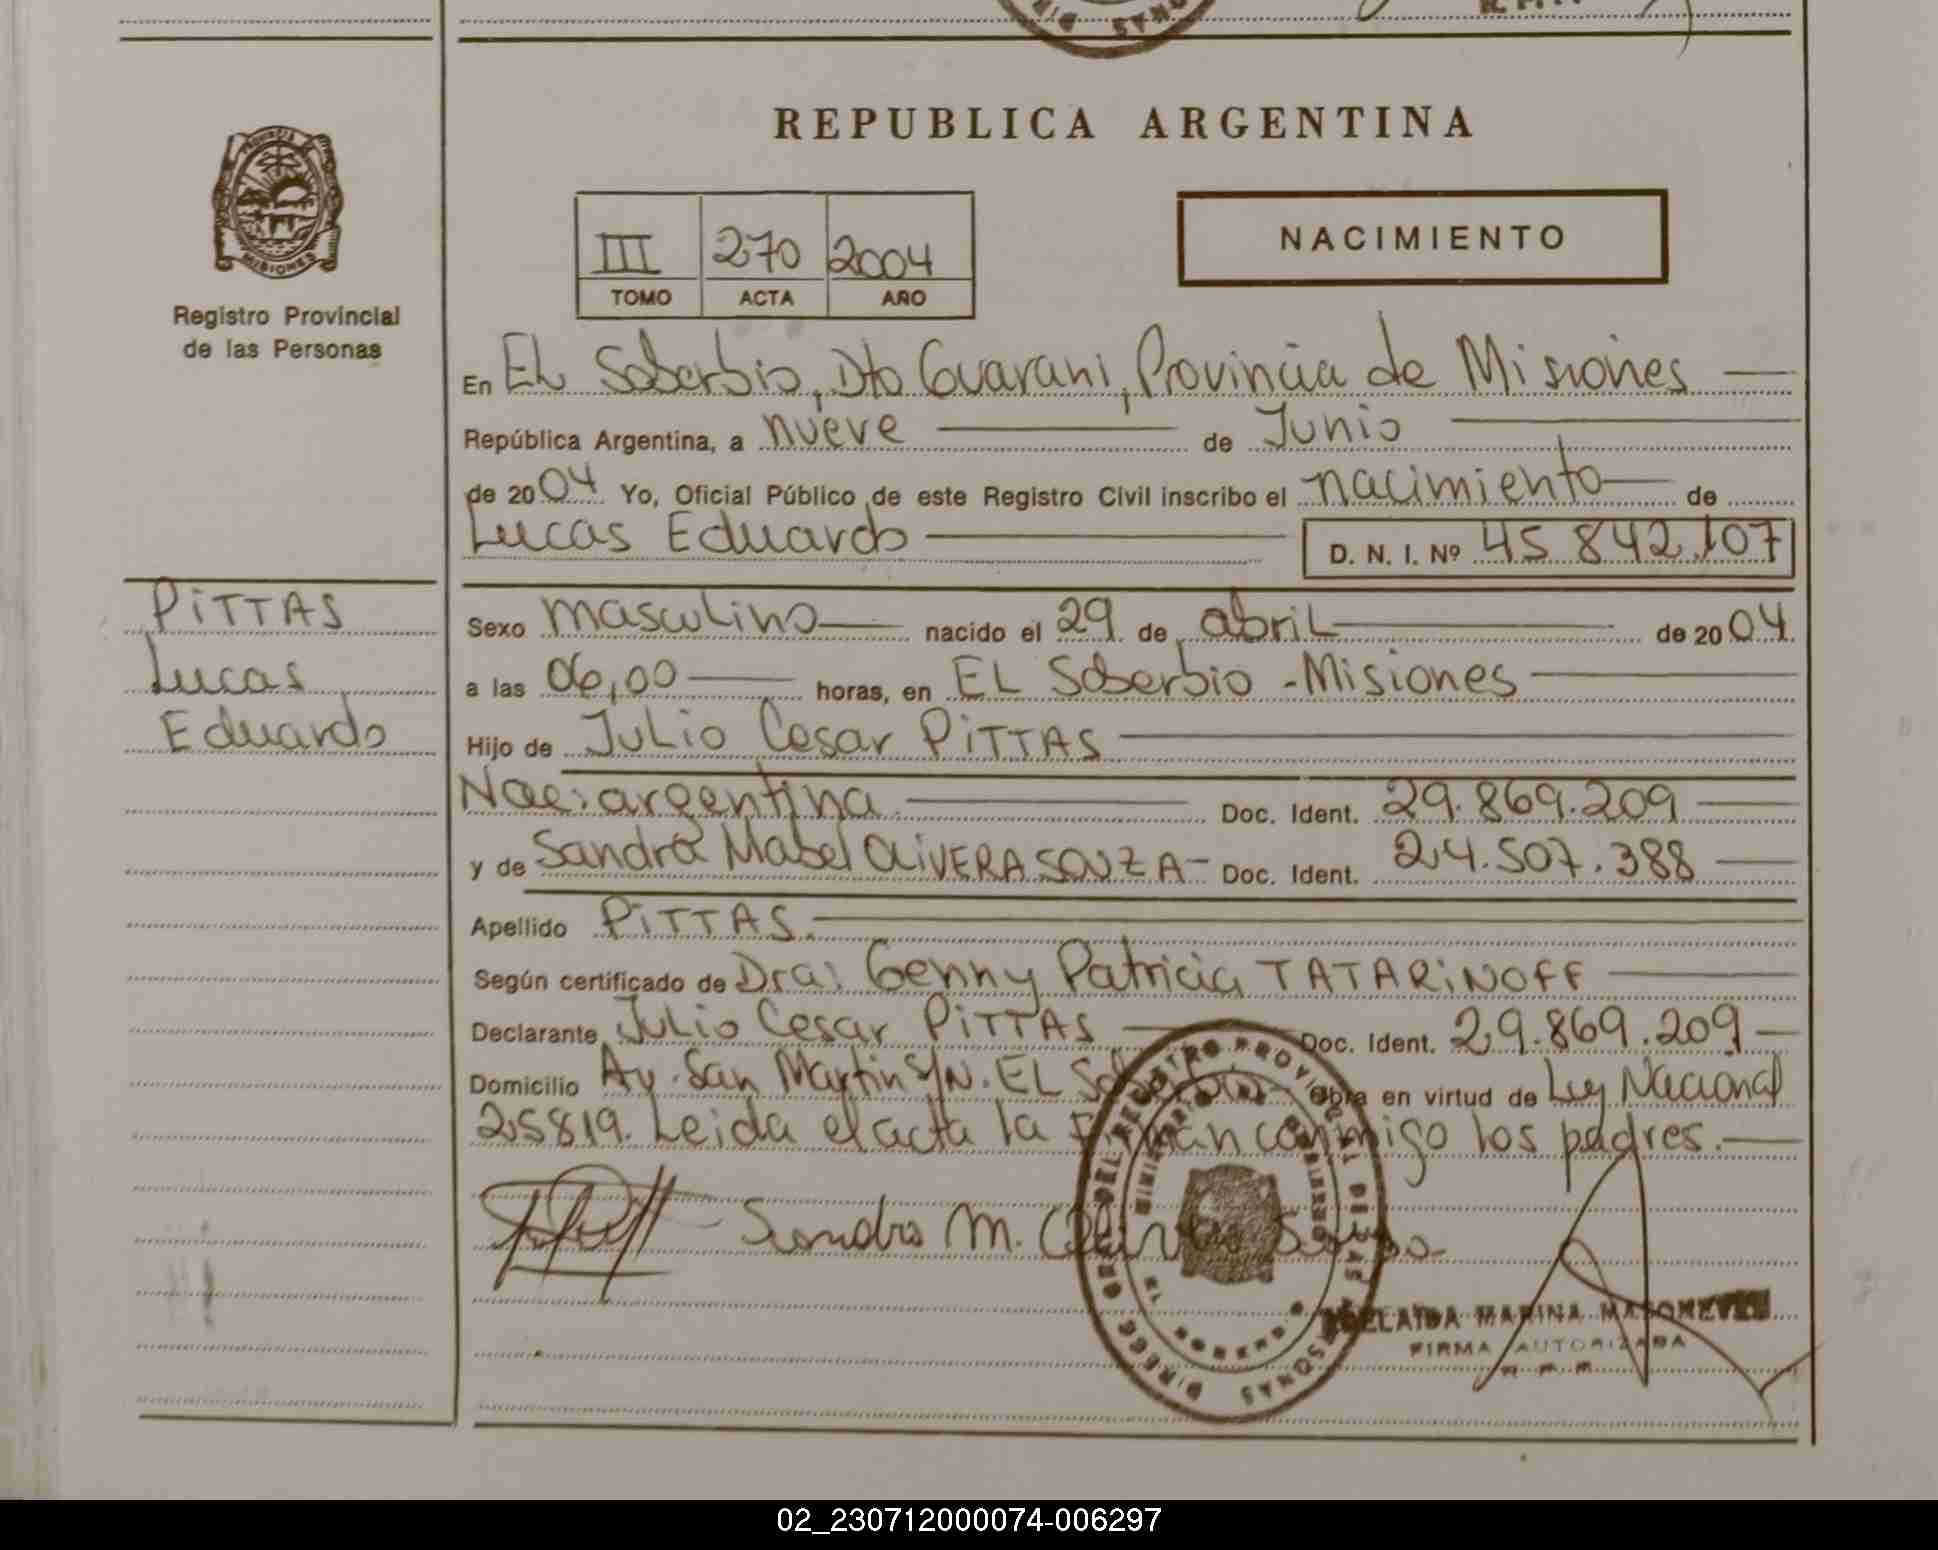 REPUBLICA ARGENTINA
PROVINCIA DE
MISIONES
Registro Provincial
de las Personas
III 270 2004
TOMO ACTA AÑO
NACIMIENTO
En EL Soberbio, Dto Guarani, Provincia de Misiones
República Argentina, a nueve de Junio
de 2004 Yo, Oficial Público de este Registro Civil inscribo el nacimiento de
Lucas Eduardo D. N. I. Nº 45.842.107
PiTTAS
Lucas
Eduardo
Sexo masculino nacido el 29 de abril de 2004
a las 06,00 horas, en EL Soberbio - Misiones
Hijo de Julio Cesar PiTTAS
Nac: argentina Doc. Ident. 29.869.209
y de Sandra Mabel OLiVERA SOUZA Doc. Ident. 24.507.388
Apellido PiTTAS.
Según certificado de Dra: Genny Patricia TATARiNOFF
Declarante Julio Cesar PiTTAS Doc. Ident. 29.869.209
Domicilio Av. San Martin S/N. EL Soberbio Obra en virtud de Ley Nacional
25819. Leida el acta la Firman conmigo los padres.
Sandra M. Olivera Souza
DIRECC. GRAL. DEL REGISTRO PROVINCIAL DE LAS PERSONAS
MINISTERIO DE GOBIERNO
MARINA
FIRMA AUTORIZADA
02_230712000074-006297